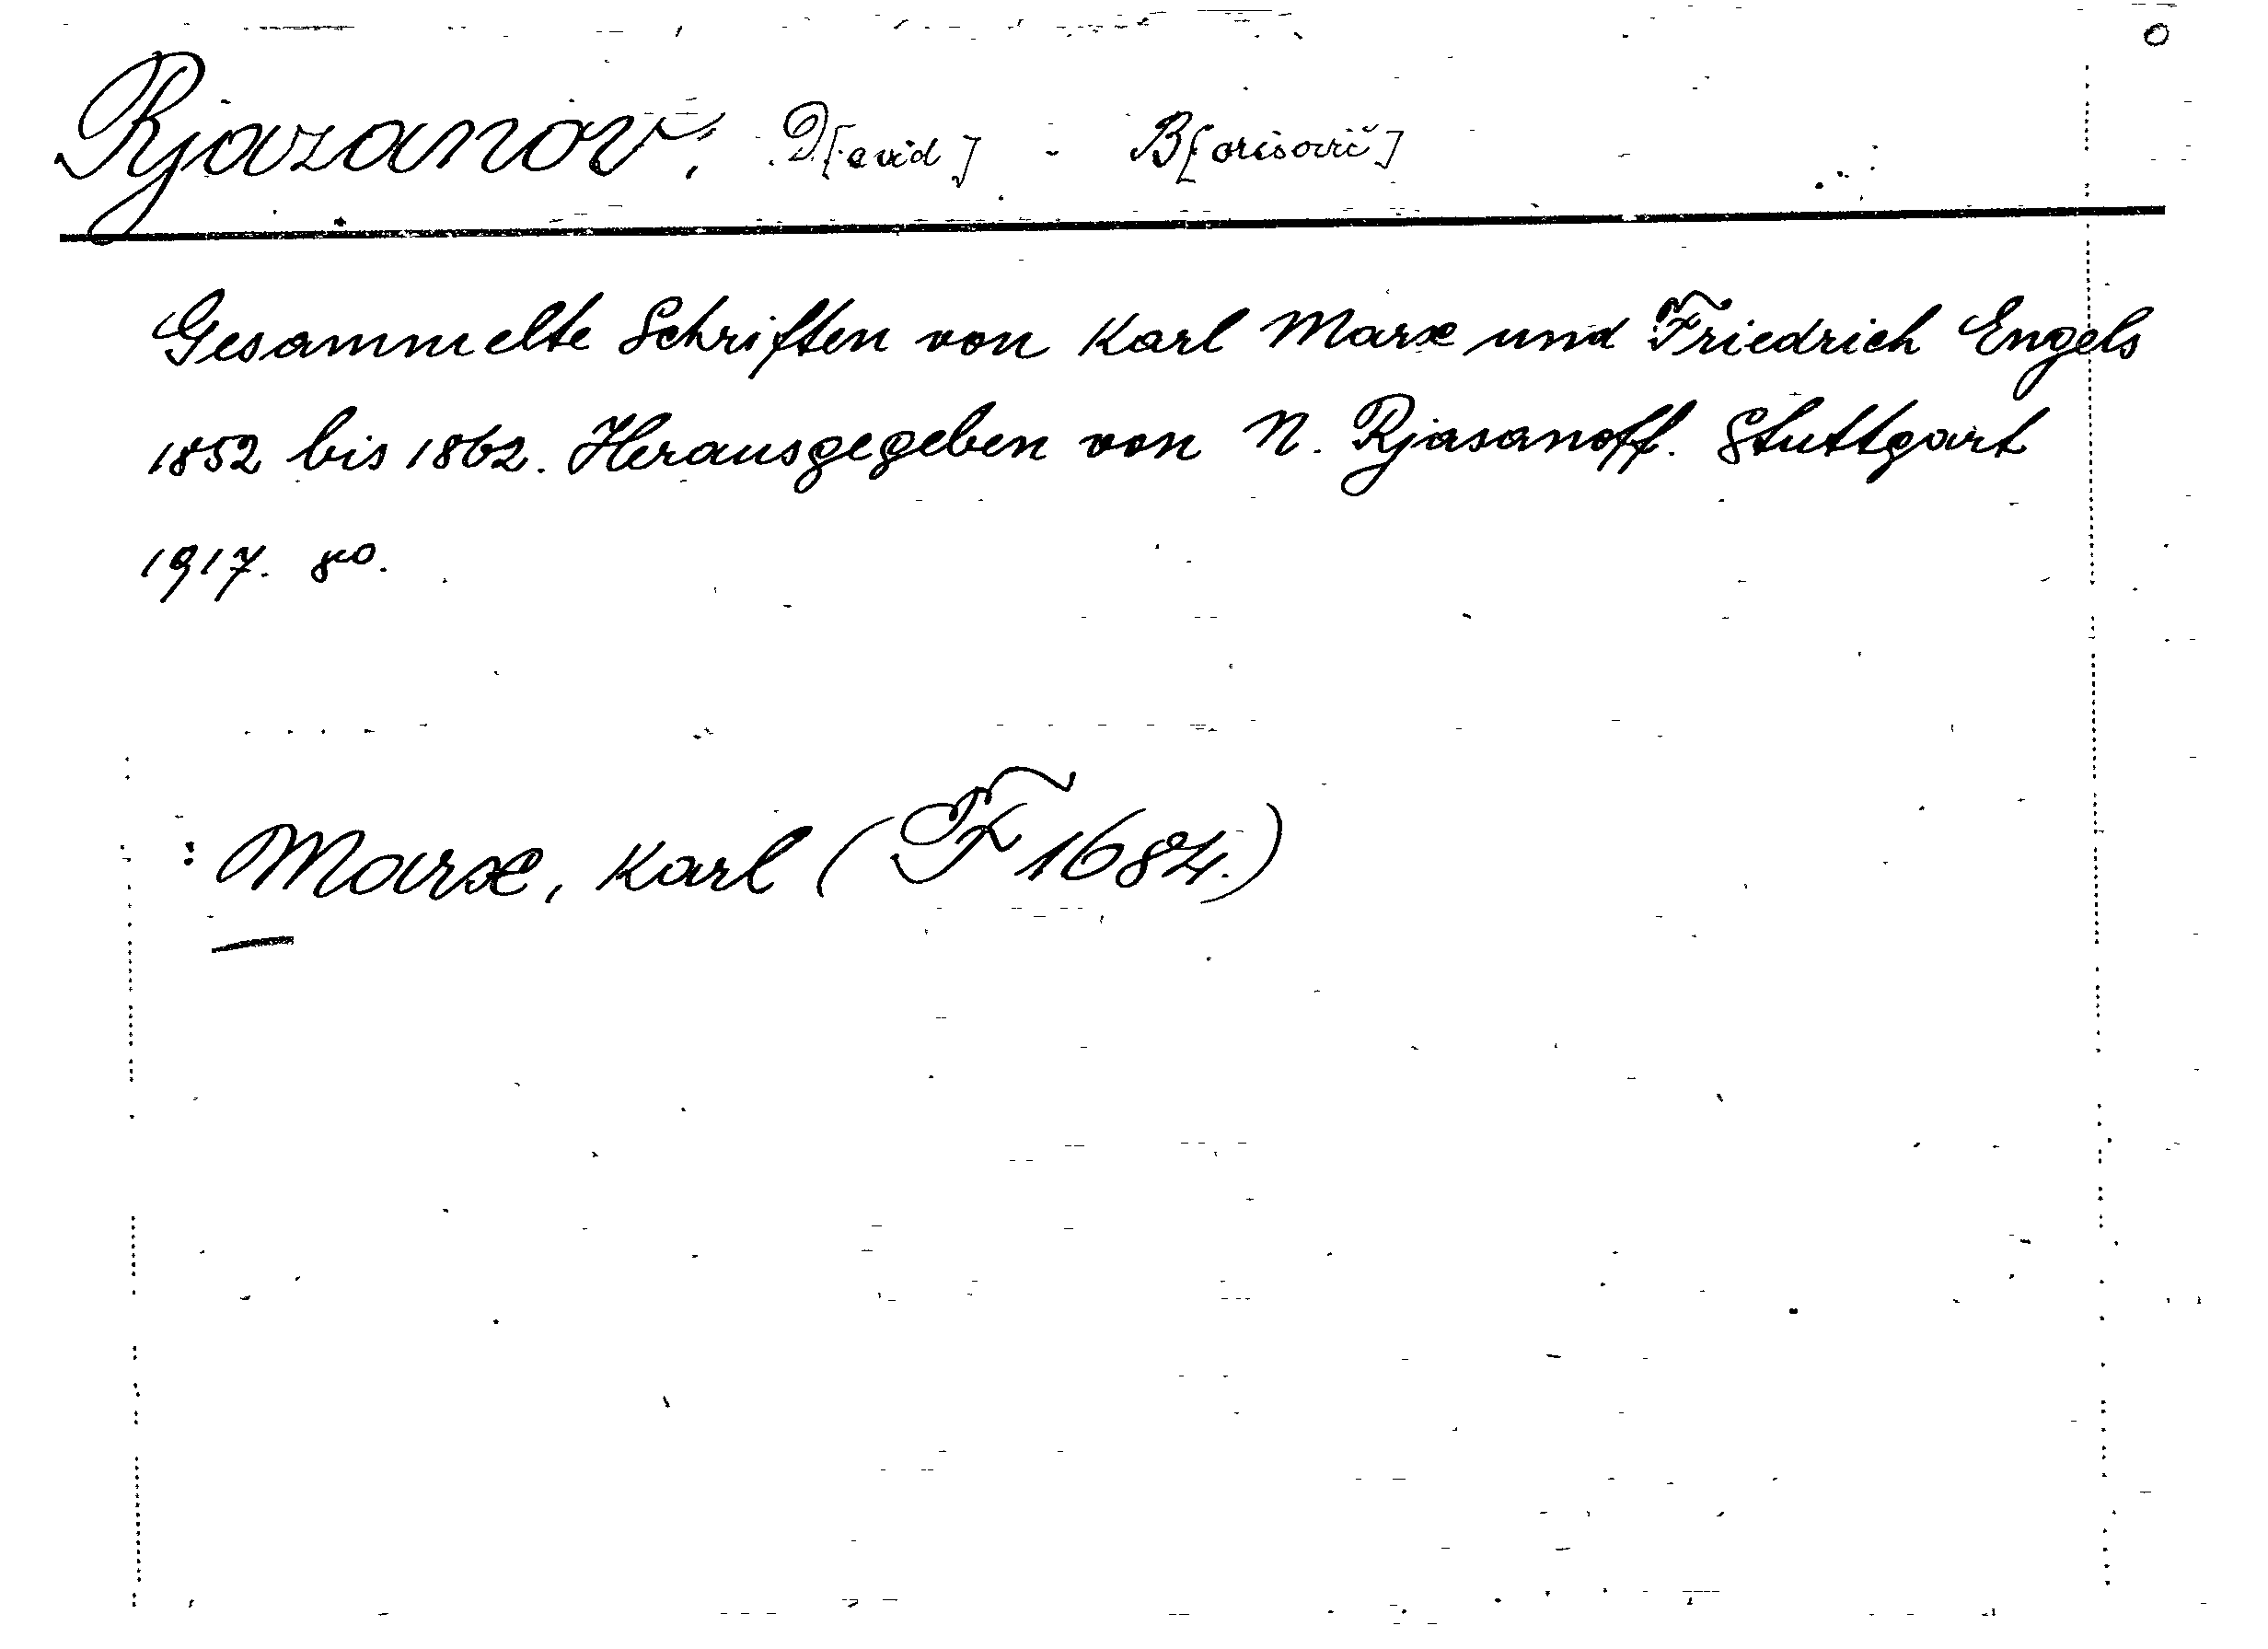 Rjazanov, D[avid] - B[orisovič]
Gesammelte Schriften von Karl Marx und Friedrich Engels
1852 bis 1862. Herausgegeben von N. Rjasanoff. Stuttgart
1917. 8vo.
: Marx, Karl (F 1684.)